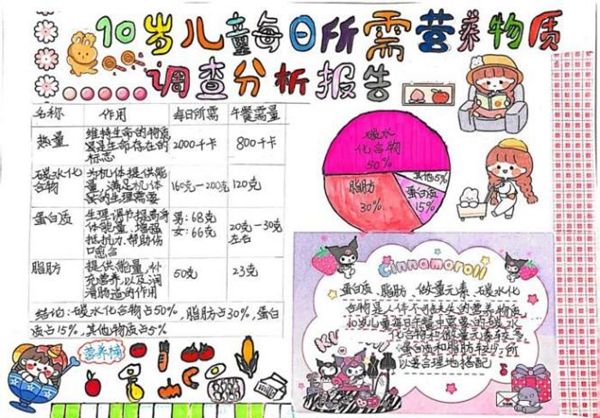 10岁儿童每日所需营养物质
调查分析报告
名称 作用 每日所需 午餐需量
热量 维持生命的物质 其是生命存在的标志 2000千卡 800千卡
碳水化合物 为机体提供能量，满足机体 的生理需要 160克-200克 120克
蛋白质 生理调节提高身体能量，增强抵抗力，帮助伤口愈合 男：68克 女：66克 20克-30克左右
脂肪 提供能量，补充营养以及润滑肠道的作用 50克 23克
结论：碳水化合物占50%，脂肪占30%，蛋白
质占15%，其他物质占5%
碳水
化合物
50%
其他5%
蛋白质
15%
脂肪
30%
营养榜
Cinnamoroll
蛋白质 脂肪 微量元素 碳水化
合物是人体不可缺失的营养物质
10岁儿童每日午餐中需要的碳水
化合物和微量元素较多
蛋白质和脂肪较少，所
以要合理地搭配